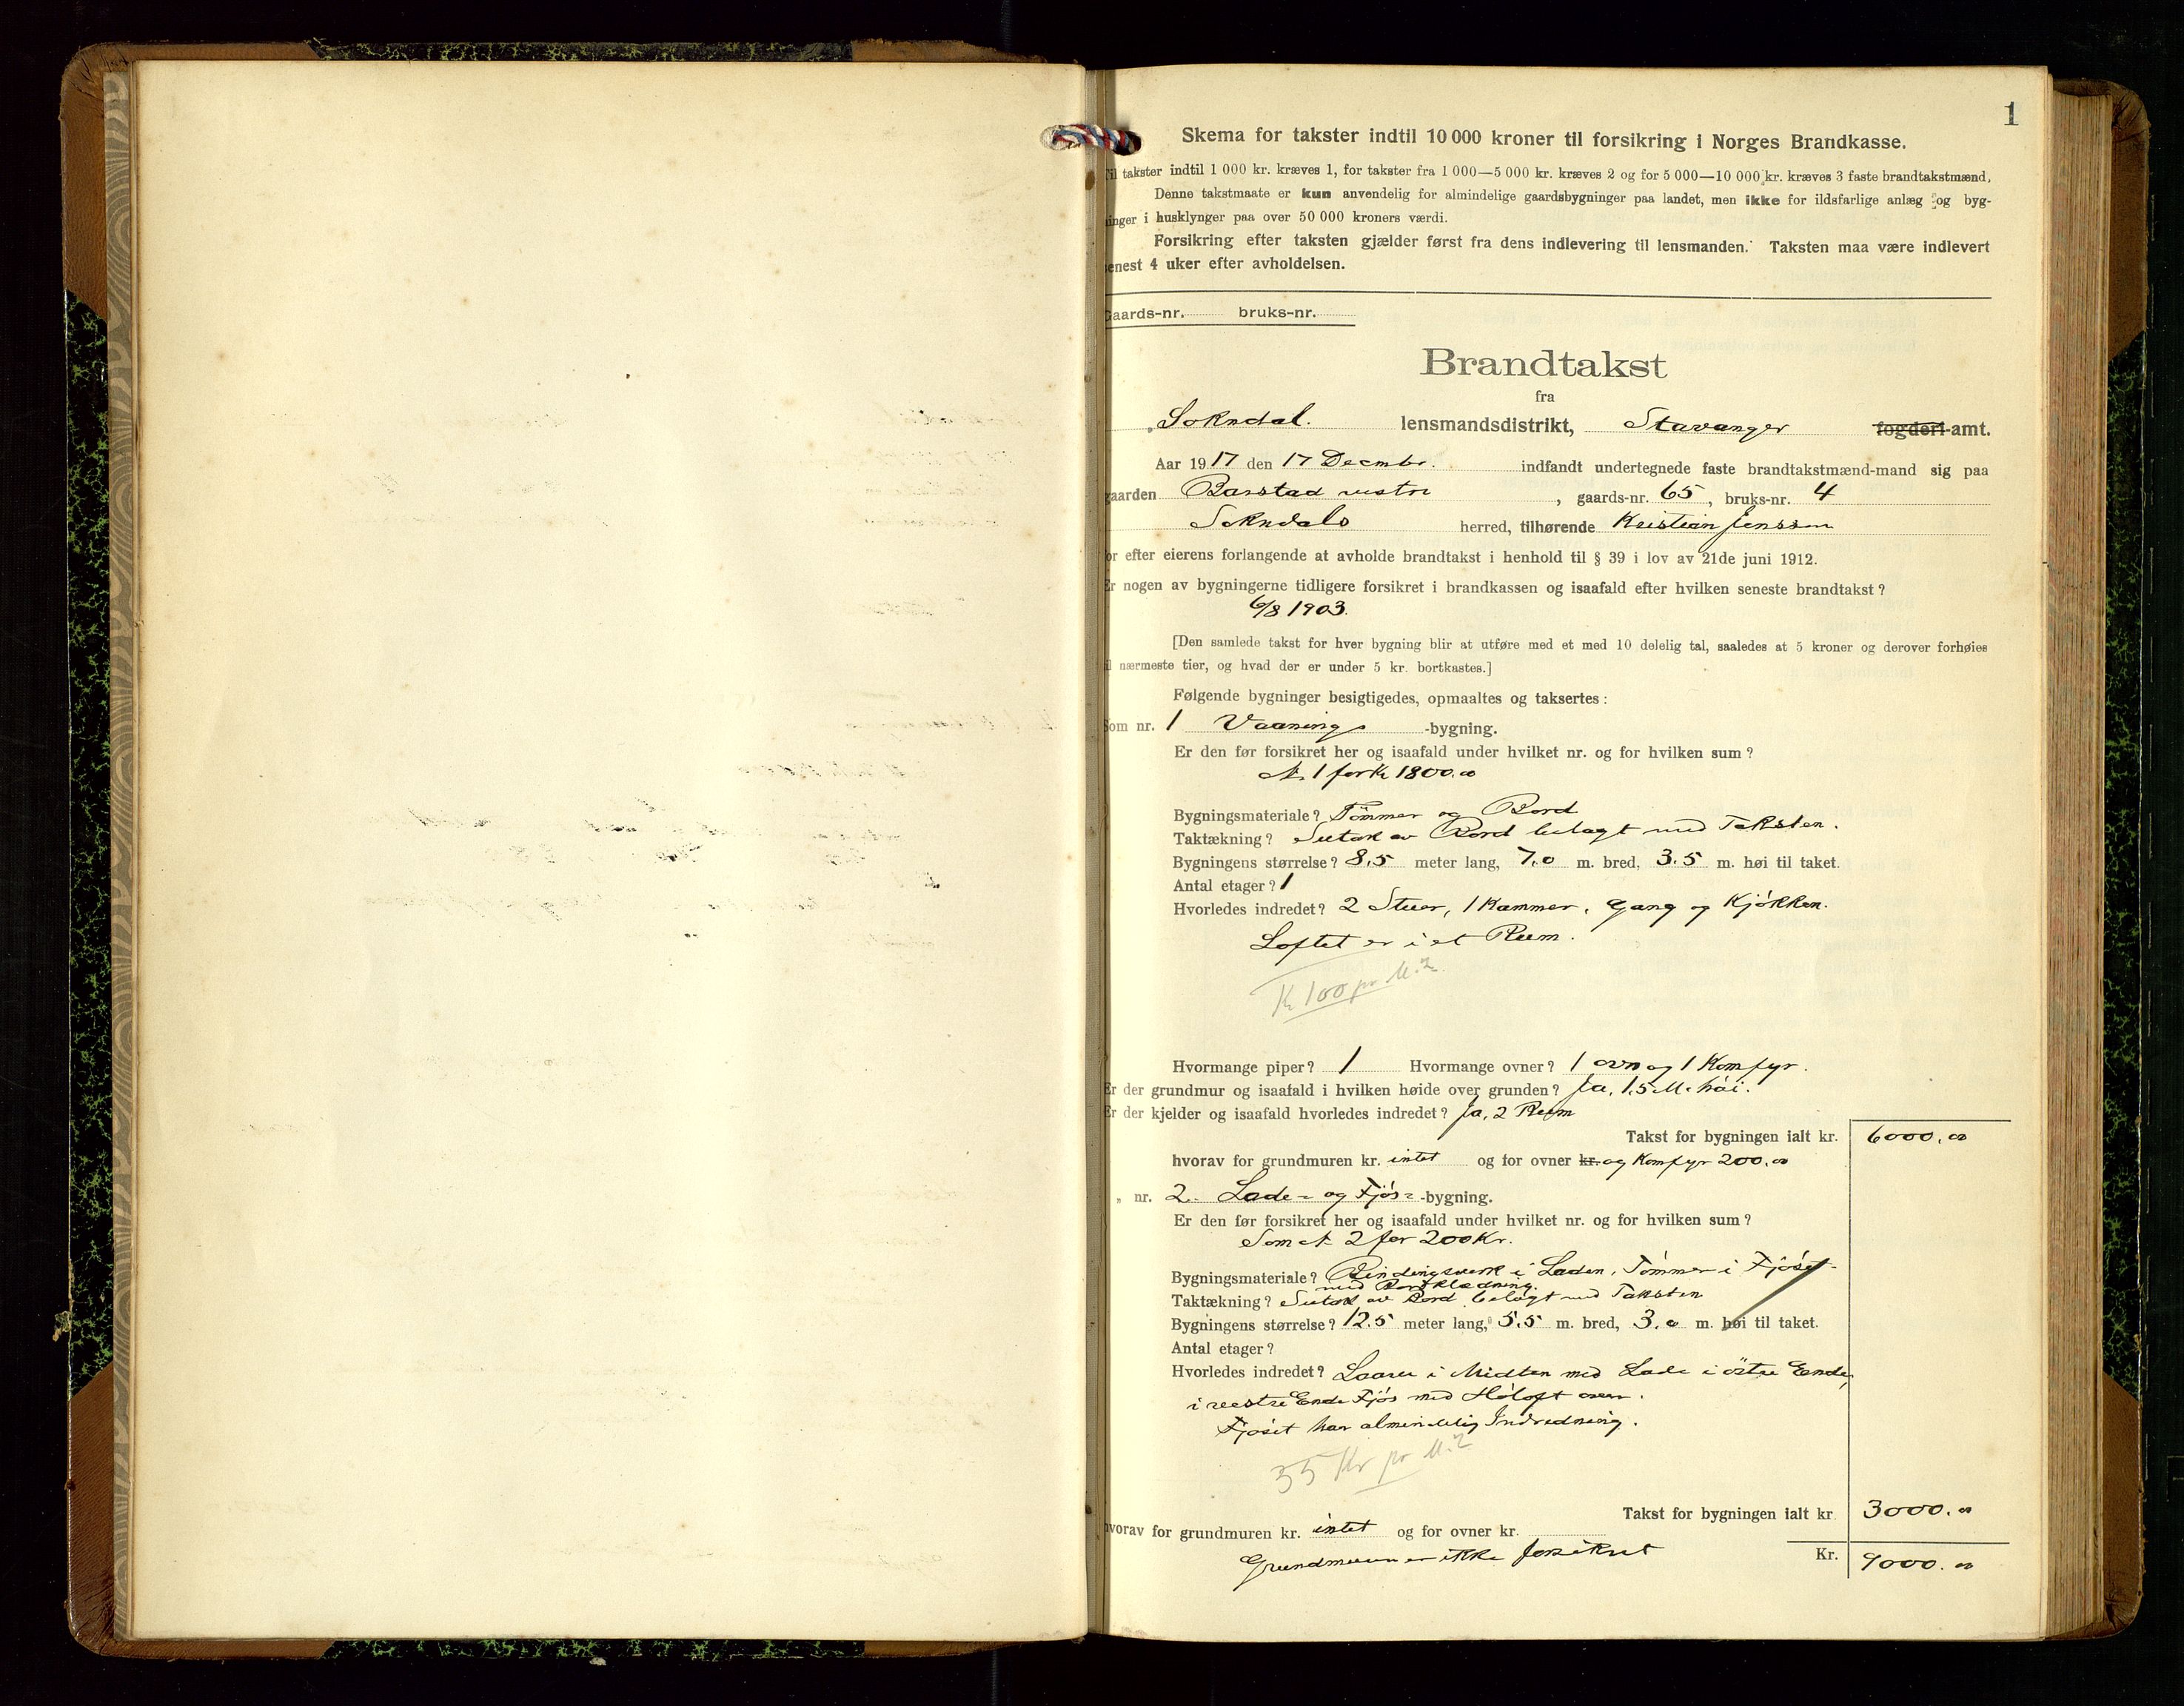 1
Skema for takster indtil 10 000 kroner til forsikring i Norges Brandkasse.
Til takster indtil 1 000 kr. kræves 1, for takster fra 1 000—5 000 kr. kræves 2 og for 5 000—10 000 kr. kræves 3 faste brandtakstmænd.
Denne takstmaate er kun anvendelig for almindelige gaardsbygninger paa landet, men ikke for ildsfarlige anlæg og byg-
ninger i husklynger paa over 50 000 kroners værdi.
Forsikring efter taksten gjælder først fra dens indlevering til lensmanden. Taksten maa være indlevert
senest 4 uker efter avholdelsen.
Gaards-nr. bruks-nr.
Brandtakst
fra
Sokndal. lensmandsdistrikt, Stavanger fogderi-amt.
Aar 1917 den 17 Decmbr. indfandt undertegnede faste brandtakstmænd-mand sig paa
gaarden Barstad vestre, gaards-nr. 65, bruks-nr. 4
Sokndals herred, tilhørende Kristian Jenssen
for efter eierens forlangende at avholde brandtakst i henhold til § 39 i lov av 21de juni 1912.
Er nogen av bygningerne tidligere forsikret i brandkassen og isaafald efter hvilken seneste brandtakst?
6/8 1903.
[Den samlede takst for hver bygning blir at utføre med et med 10 delelig tal, saaledes at 5 kroner og derover forhøies
til nærmeste tier, og hvad der er under 5 kr. bortkastes.]
Følgende bygninger besigtigedes, opmaaltes og taksertes:
Som nr. 1 Vaanings -bygning.
Er den før forsikret her og isaafald under hvilket nr. og for hvilken sum?
№ 1 for Kr 1800.00
Bygningsmateriale? Tømmer og Bord
Taktækning? Sutak av Bord belagt med Taksten.
Bygningens størrelse? 8,5 meter lang, 7,0 m. bred, 3.5 m. høi til taket.
Antal etager? 1
Hvorledes indredet? 2 Stuer, 1 Kammer, Gang og Kjøkken.
Loftet er i et Rum.
Kr 100 pr M.2
Hvormange piper? 1 Hvormange ovner? 1 ovn og 1 Komfyr.
Er der grundmur og isaafald i hvilken høide over grunden? Ja, 1.5 M. høi.
Er der kjelder og isaafald hvorledes indredet? Ja, 2 Rum
Takst for bygningen ialt kr. 6000.00
hvorav for grundmuren kr. intet og for ovner kr. og Komfyr 200.00
„ nr. 2. Lade- og Fjøs- -bygning.
Er den før forsikret her og isaafald under hvilket nr. og for hvilken sum?
Som № 2 for 200 Kr.
Bygningsmateriale? Bindingsverk i Laden, Tømmer i Fjøset-
med Bordklædning.
Taktækning? Sutak av Bord belagt med Taksten
Bygningens størrelse? 12.5 meter lang, 5.5 m. bred, 3.0 m. høi til taket.
Antal etager?
Hvorledes indredet? Laave i Midten med Lade i østre Ende,
i vestre Ende Fjøs med Høloft over.
Fjøset har almindelig Indredning.
35 Kr pr M.2
Takst for bygningen ialt kr 3000.00
hvorav for grundmuren kr. intet og for ovner kr.
Grundmuren er ikke forsikret
Kr. 9000.00